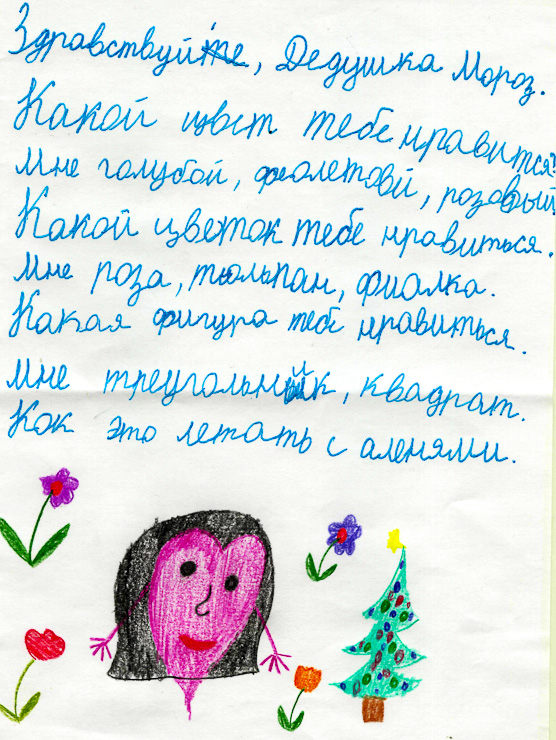 Здравствуйте, Дедушка Мороз.
Какой цвет тебе нравится?
Мне голубой, фиолетовй, розовый
Какой цветок тебе нравиться.
Мне роза, тюльпан, фиалка.
Какая фигура тебе нравиться.
Мне треугольник, квадрат.
Как это летать с аленями.